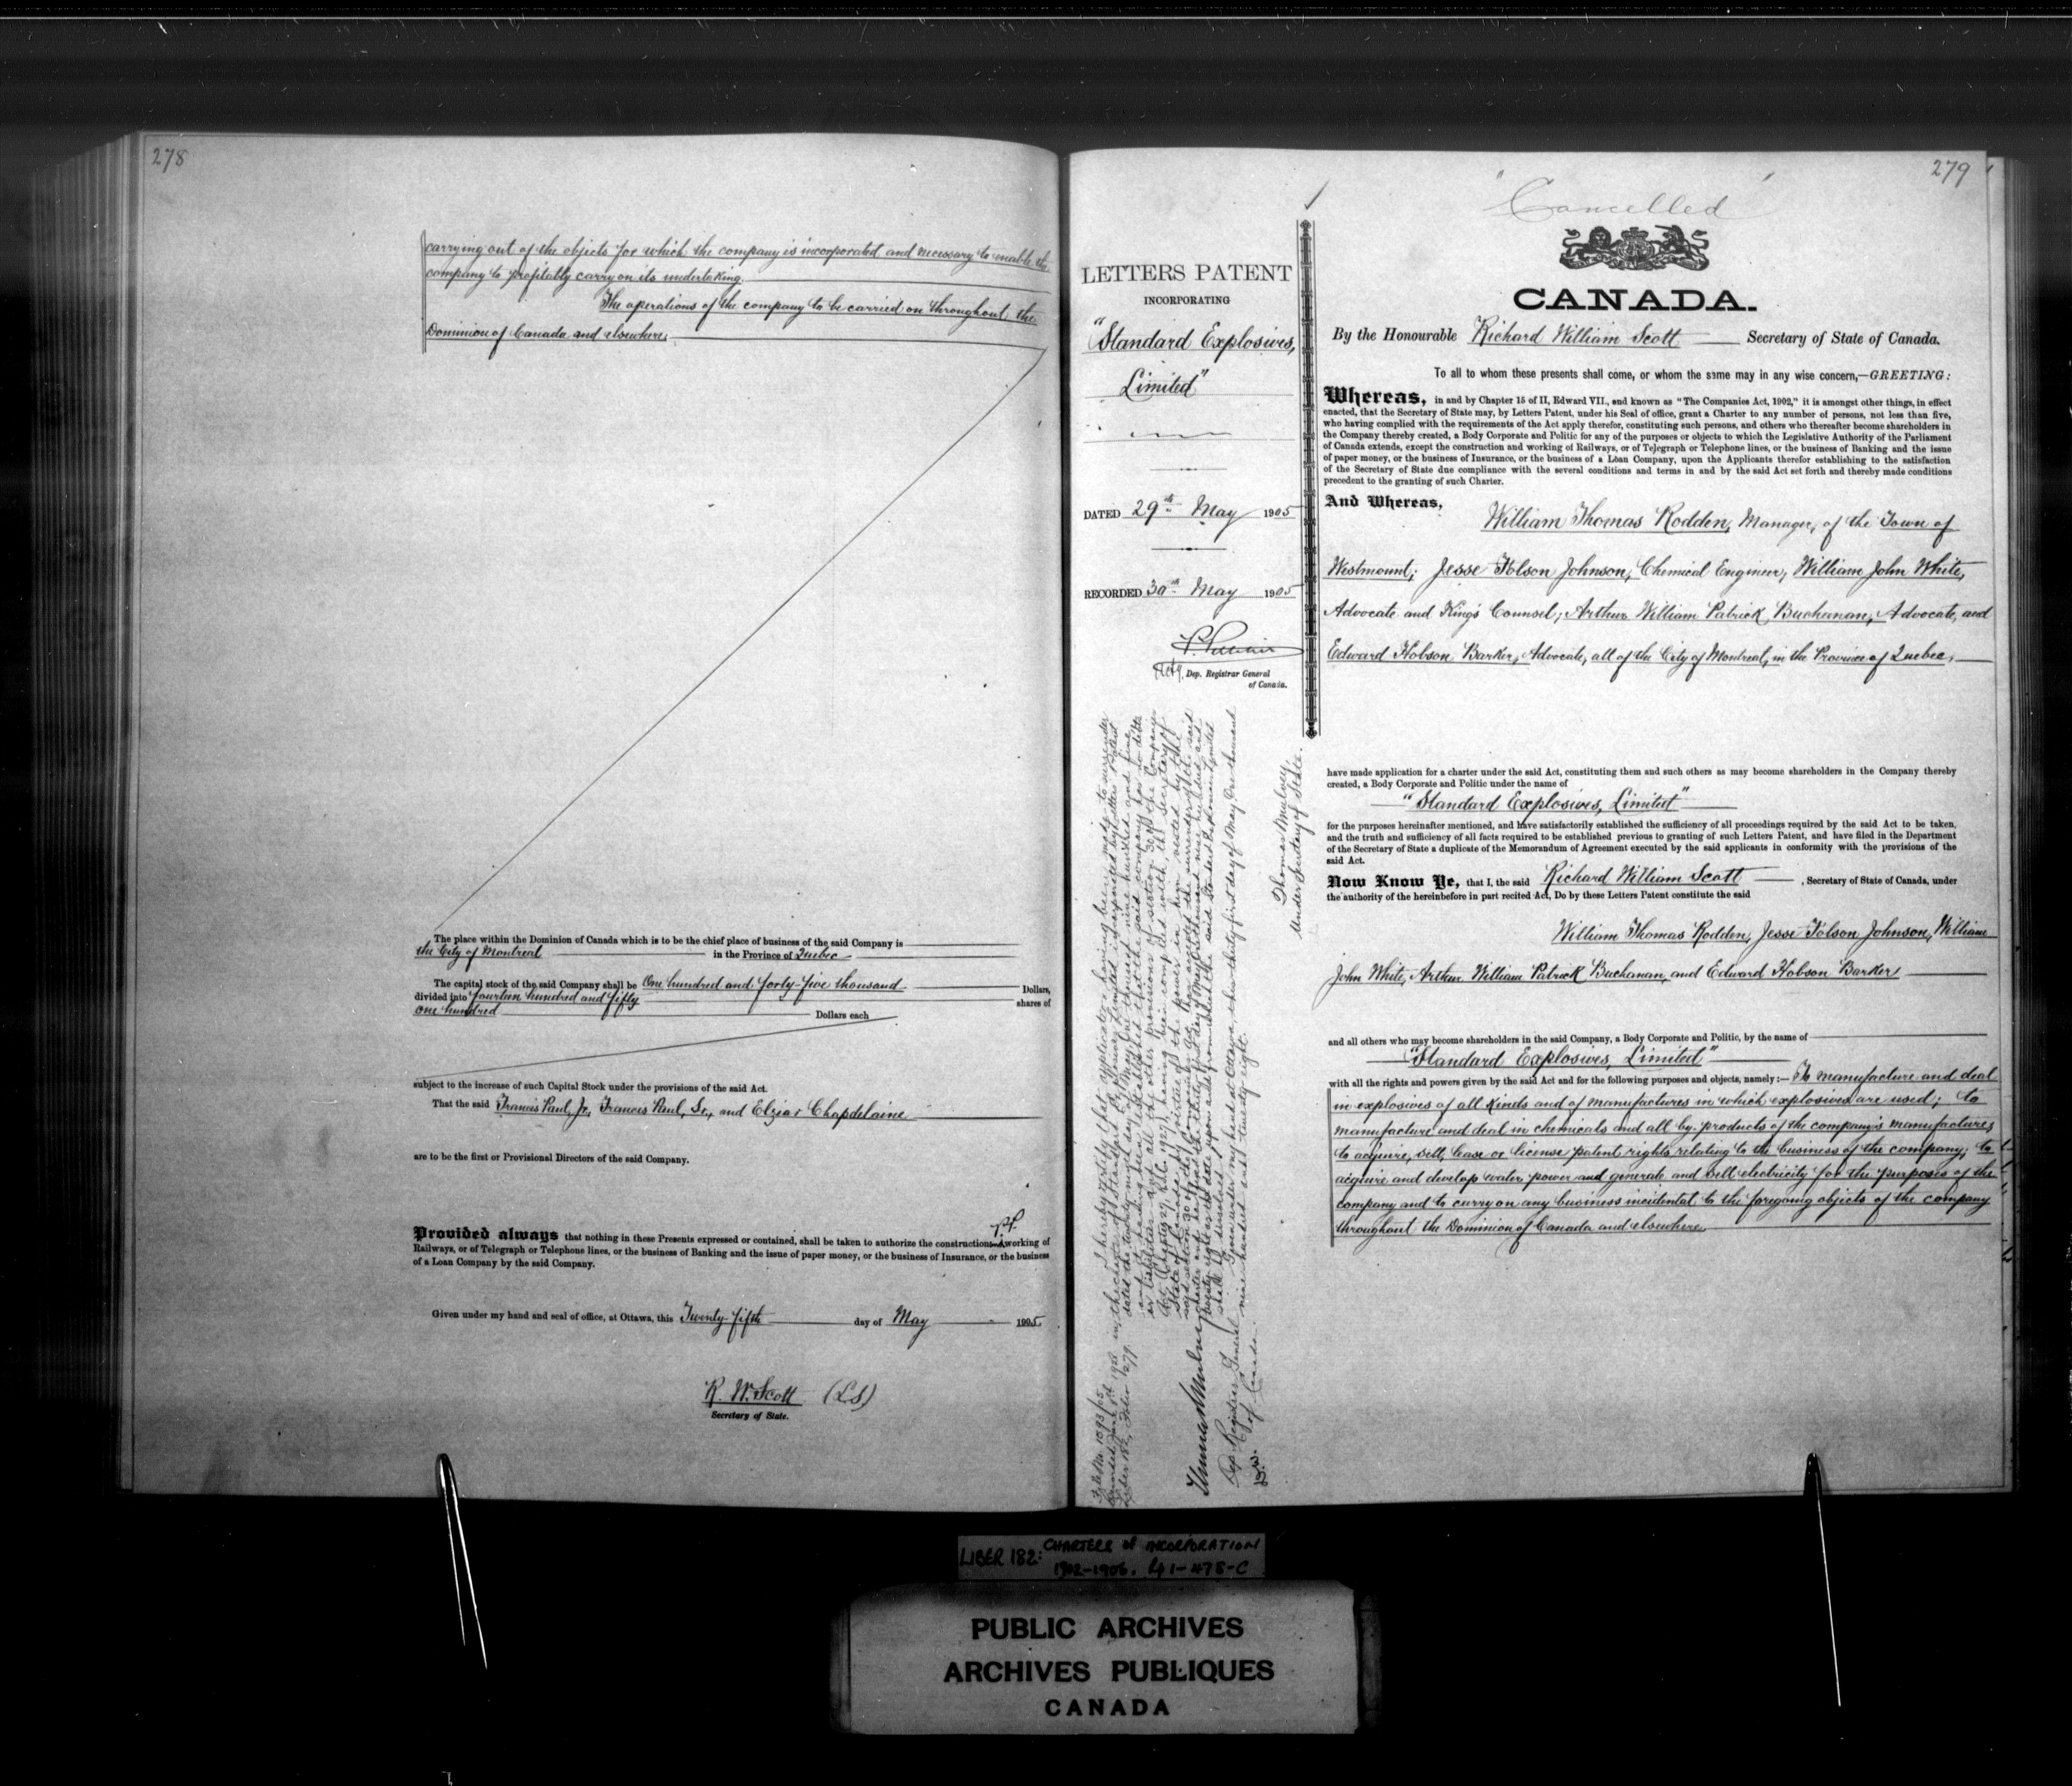 278
carrying out of the objects for which the company is incorporated and necessary to enable the
company to profitably carry on its undertaking.
The operations of the company to be carried on throughout the
Dominion of Canada and elsewhere.
The place within the Dominion of Canada which is to be the chief place of business of the said Company is
the City of Montreal in the Province of Quebec
The capital stock of the said Company shall be One hundred and forty-five thousand Dollars,
divided into fourteen hundred and fifty shares of
one hundred Dollars each
subject to the increase of such Capital Stock under the provisions of the said Act.
That the said Francis Paul, Jr., Francis Paul, Sr., and Elzear Chapdelaine
are to be the first or Provisional Directors of the said Company.
P.P.
Provided always that nothing in these Presents expressed or contained, shall be taken to authorize the construction and working of
Railways, or of Telegraph or Telephone lines, or the business of Banking and the issue of paper money, or the business of Insurance, or the business
of a Loan Company by the said Company.
Given under my hand and seal of office, at Ottawa, this Twenty-fifth day of May 1905.
R. W. Scott (LS)
Secretary of State.
279
"Cancelled"
LETTERS PATENT
INCORPORATING
"Standard Explosives,
Limited"
DATED 29th May 1905
RECORDED 30th May 1905
Actg. Dep. Registrar General
of Canada.
I hereby certify that application having been made to surrender
the charter of Standard Explosives Limited incorporated by Letters Patent
dated the twenty ninth day of May one thousand nine hundred and five
and it having been established that the said company has no debts
or liabilities and all the other provisions of section 30 of the Companies
Act, Chapter 27, R.S.C. 1927, having been complied with, the Secretary of
State of Canada by virtue of the power in him vested by the
said section 30 of the Companies Act, has accepted the surrender of the said
charter and has fixed the thirty first day of May one thousand nine hundred and
twenty eight as the date upon and from which the said Standard Explosives Limited
shall be dissolved.
Given under my hand at Ottawa, this thirty first day of May, One thousand
nine hundred and twenty eight.
Thomas Mulvey,
Under Secretary of State.
File No. 1093/05
Recorded June 1928
Liber 182, Folio 279.
Thomas Mulvey
Dep Registrar General
of Canada.
CANADA.
By the Honourable Richard William Scott Secretary of State of Canada.
To all to whom these presents shall come, or whom the same may in any wise concern,—GREETING:
Whereas, in and by Chapter 15 of II, Edward VII., and known as "The Companies Act, 1902," it is amongst other things, in effect
enacted, that the Secretary of State may, by Letters Patent, under his Seal of office, grant a Charter to any number of persons, not less than five,
who having complied with the requirements of the Act apply therefor, constituting such persons, and others who thereafter become shareholders in
the Company thereby created, a Body Corporate and Politic for any of the purposes or objects to which the Legislative Authority of the Parliament
of Canada extends, except the construction and working of Railways, or of Telegraph or Telephone lines, or the business of Banking and the issue
of paper money, or the business of Insurance, or the business of a Loan Company, upon the Applicants therefor establishing to the satisfaction
of the Secretary of State due compliance with the several conditions and terms in and by the said Act set forth and thereby made conditions
precedent to the granting of such Charter.
And Whereas,
William Thomas Rodden, Manager, of the Town of
Westmount; Jesse Folson Johnson, Chemical Engineer, William John White,
Advocate and King's Counsel; Arthur William Patrick Buchanan, Advocate, and
Edward Hobson Barker, Advocate, all of the City of Montreal, in the Province of Quebec,
have made application for a charter under the said Act, constituting them and such others as may become shareholders in the Company thereby
created, a Body Corporate and Politic under the name of
"Standard Explosives, Limited"
for the purposes hereinafter mentioned, and have satisfactorily established the sufficiency of all proceedings required by the said Act to be taken,
and the truth and sufficiency of all facts required to be established previous to granting of such Letters Patent, and have filed in the Department
of the Secretary of State a duplicate of the Memorandum of Agreement executed by the said applicants in conformity with the provisions of the
said Act.
Now Know Ye, that I, the said Richard William Scott, Secretary of State of Canada, under
the authority of the hereinbefore in part recited Act, Do by these Letters Patent constitute the said
William Thomas Rodden, Jesse Folson Johnson, William
John White, Arthur William Patrick Buchanan, and Edward Hobson Barker
and all others who may become shareholders in the said Company, a Body Corporate and Politic, by the name of
"Standard Explosives, Limited"
with all the rights and powers given by the said Act and for the following purposes and objects, namely:— To manufacture and deal
in explosives of all kinds and of manufactures in which explosives are used; to
manufacture and deal in chemicals and all by-products of the company's manufactures;
to acquire, sell, lease or license patent rights relating to the business of the company; to
acquire and develop water power and generate and sell electricity for the purposes of the
company and to carry on any business incidental to the foregoing objects of the company
throughout the Dominion of Canada and elsewhere.
LIBER 182: CHARTERS of INCORPORATION
1902-1906. 41-478-C
PUBLIC ARCHIVES
ARCHIVES PUBLIQUES
CANADA